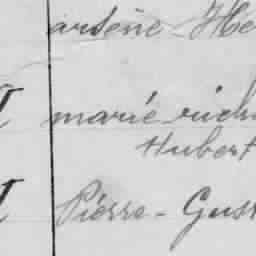 arsène He
marie rich
Hubert
Pierre - Gus